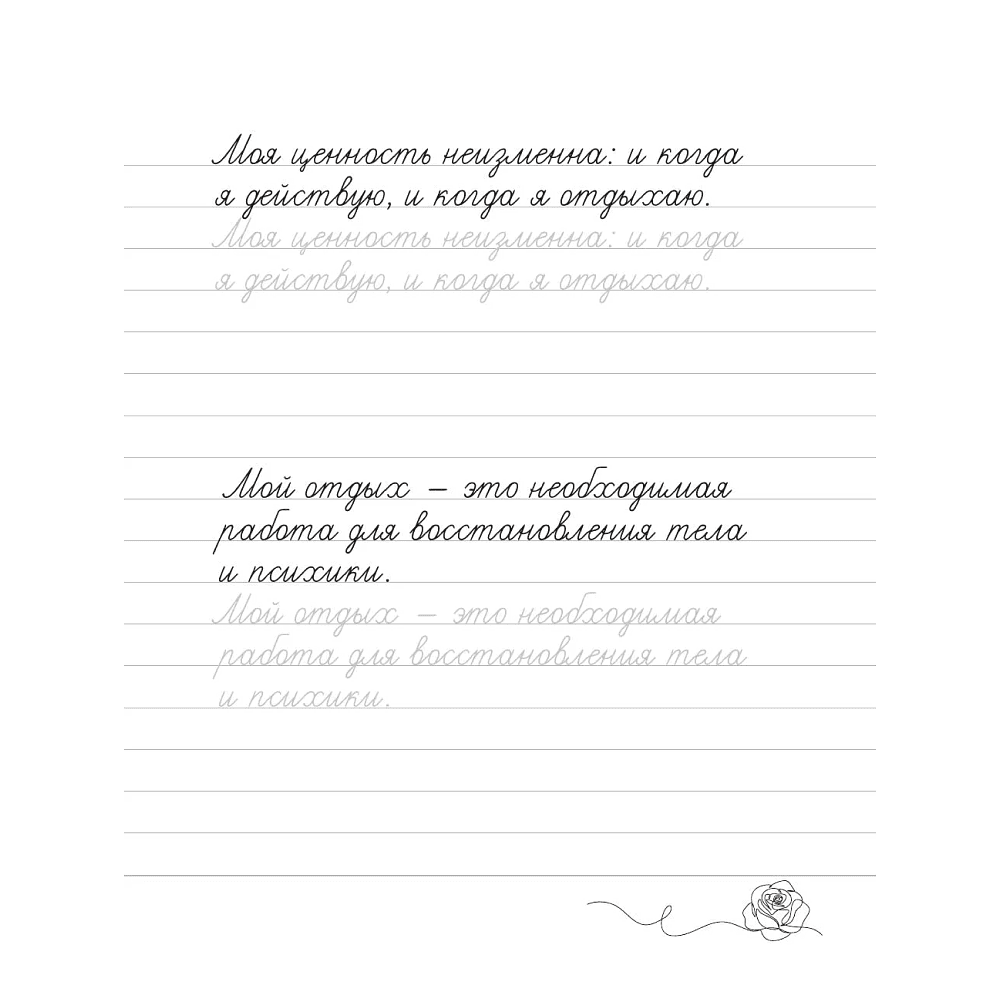 Моя ценность неизменна: и когда
я действую, и когда я отдыхаю.
Моя ценность неизменна: и когда
я действую, и когда я отдыхаю.
Мой отдых – это необходимая
работа для восстановления тела
и психики.
Мой отдых – это необходимая
работа для восстановления тела
и психики.